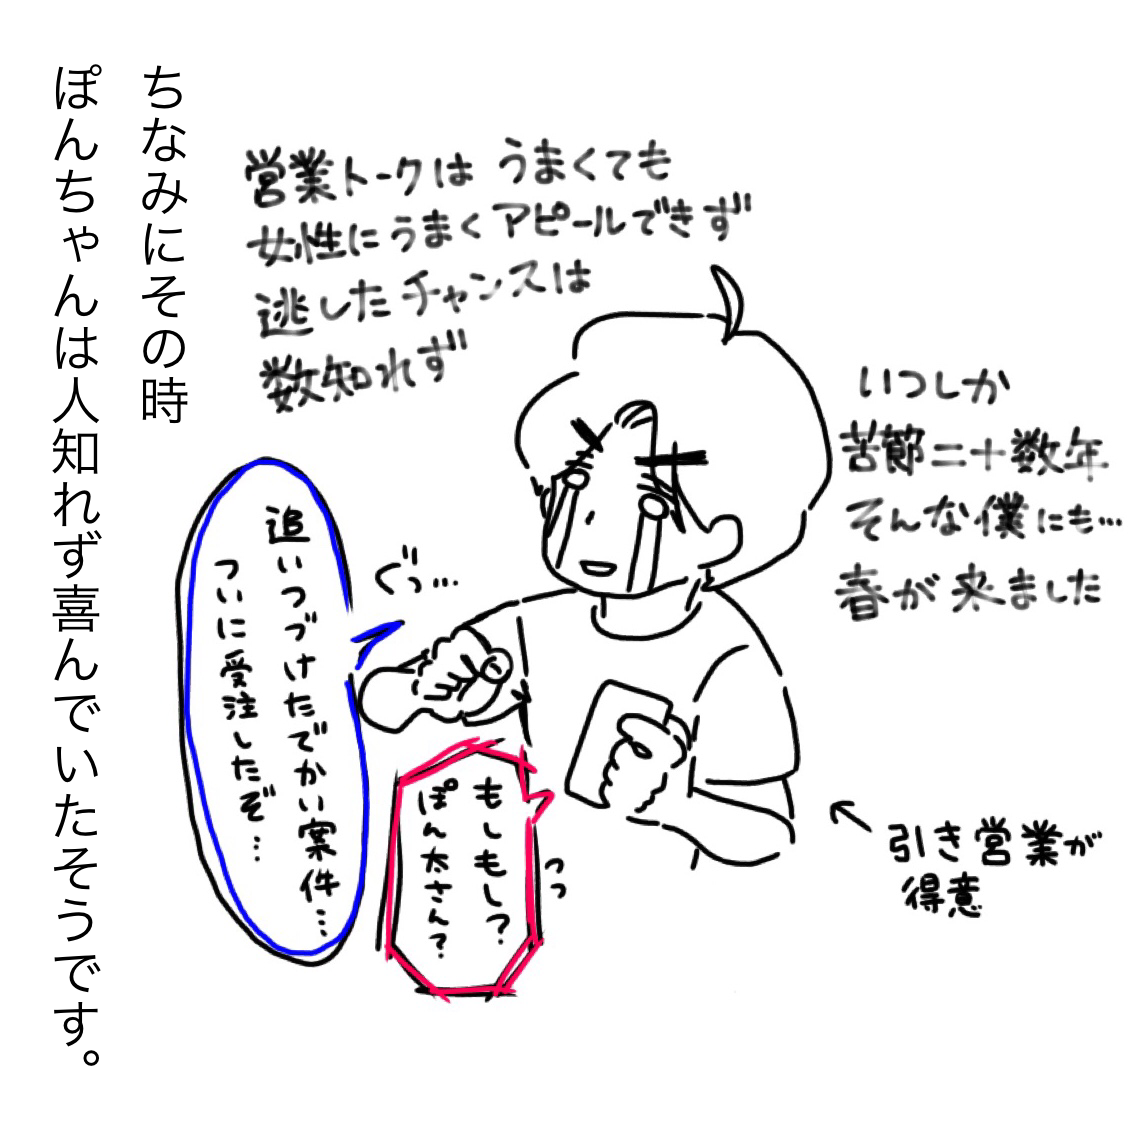 ちなみにその時
ぽんちゃんは人知れず喜んでいたそうです。
営業トークは うまくても
女性にうまくアピールできず
逃したチャンスは
数知れず
いつしか
苦節二十数年
そんな僕にも…
春が来ました
ぐっ…
追いつづけたでかい案件…
ついに受注したぞ…
もしもし?
ぽん太さん?
っっ
引き営業が
得意